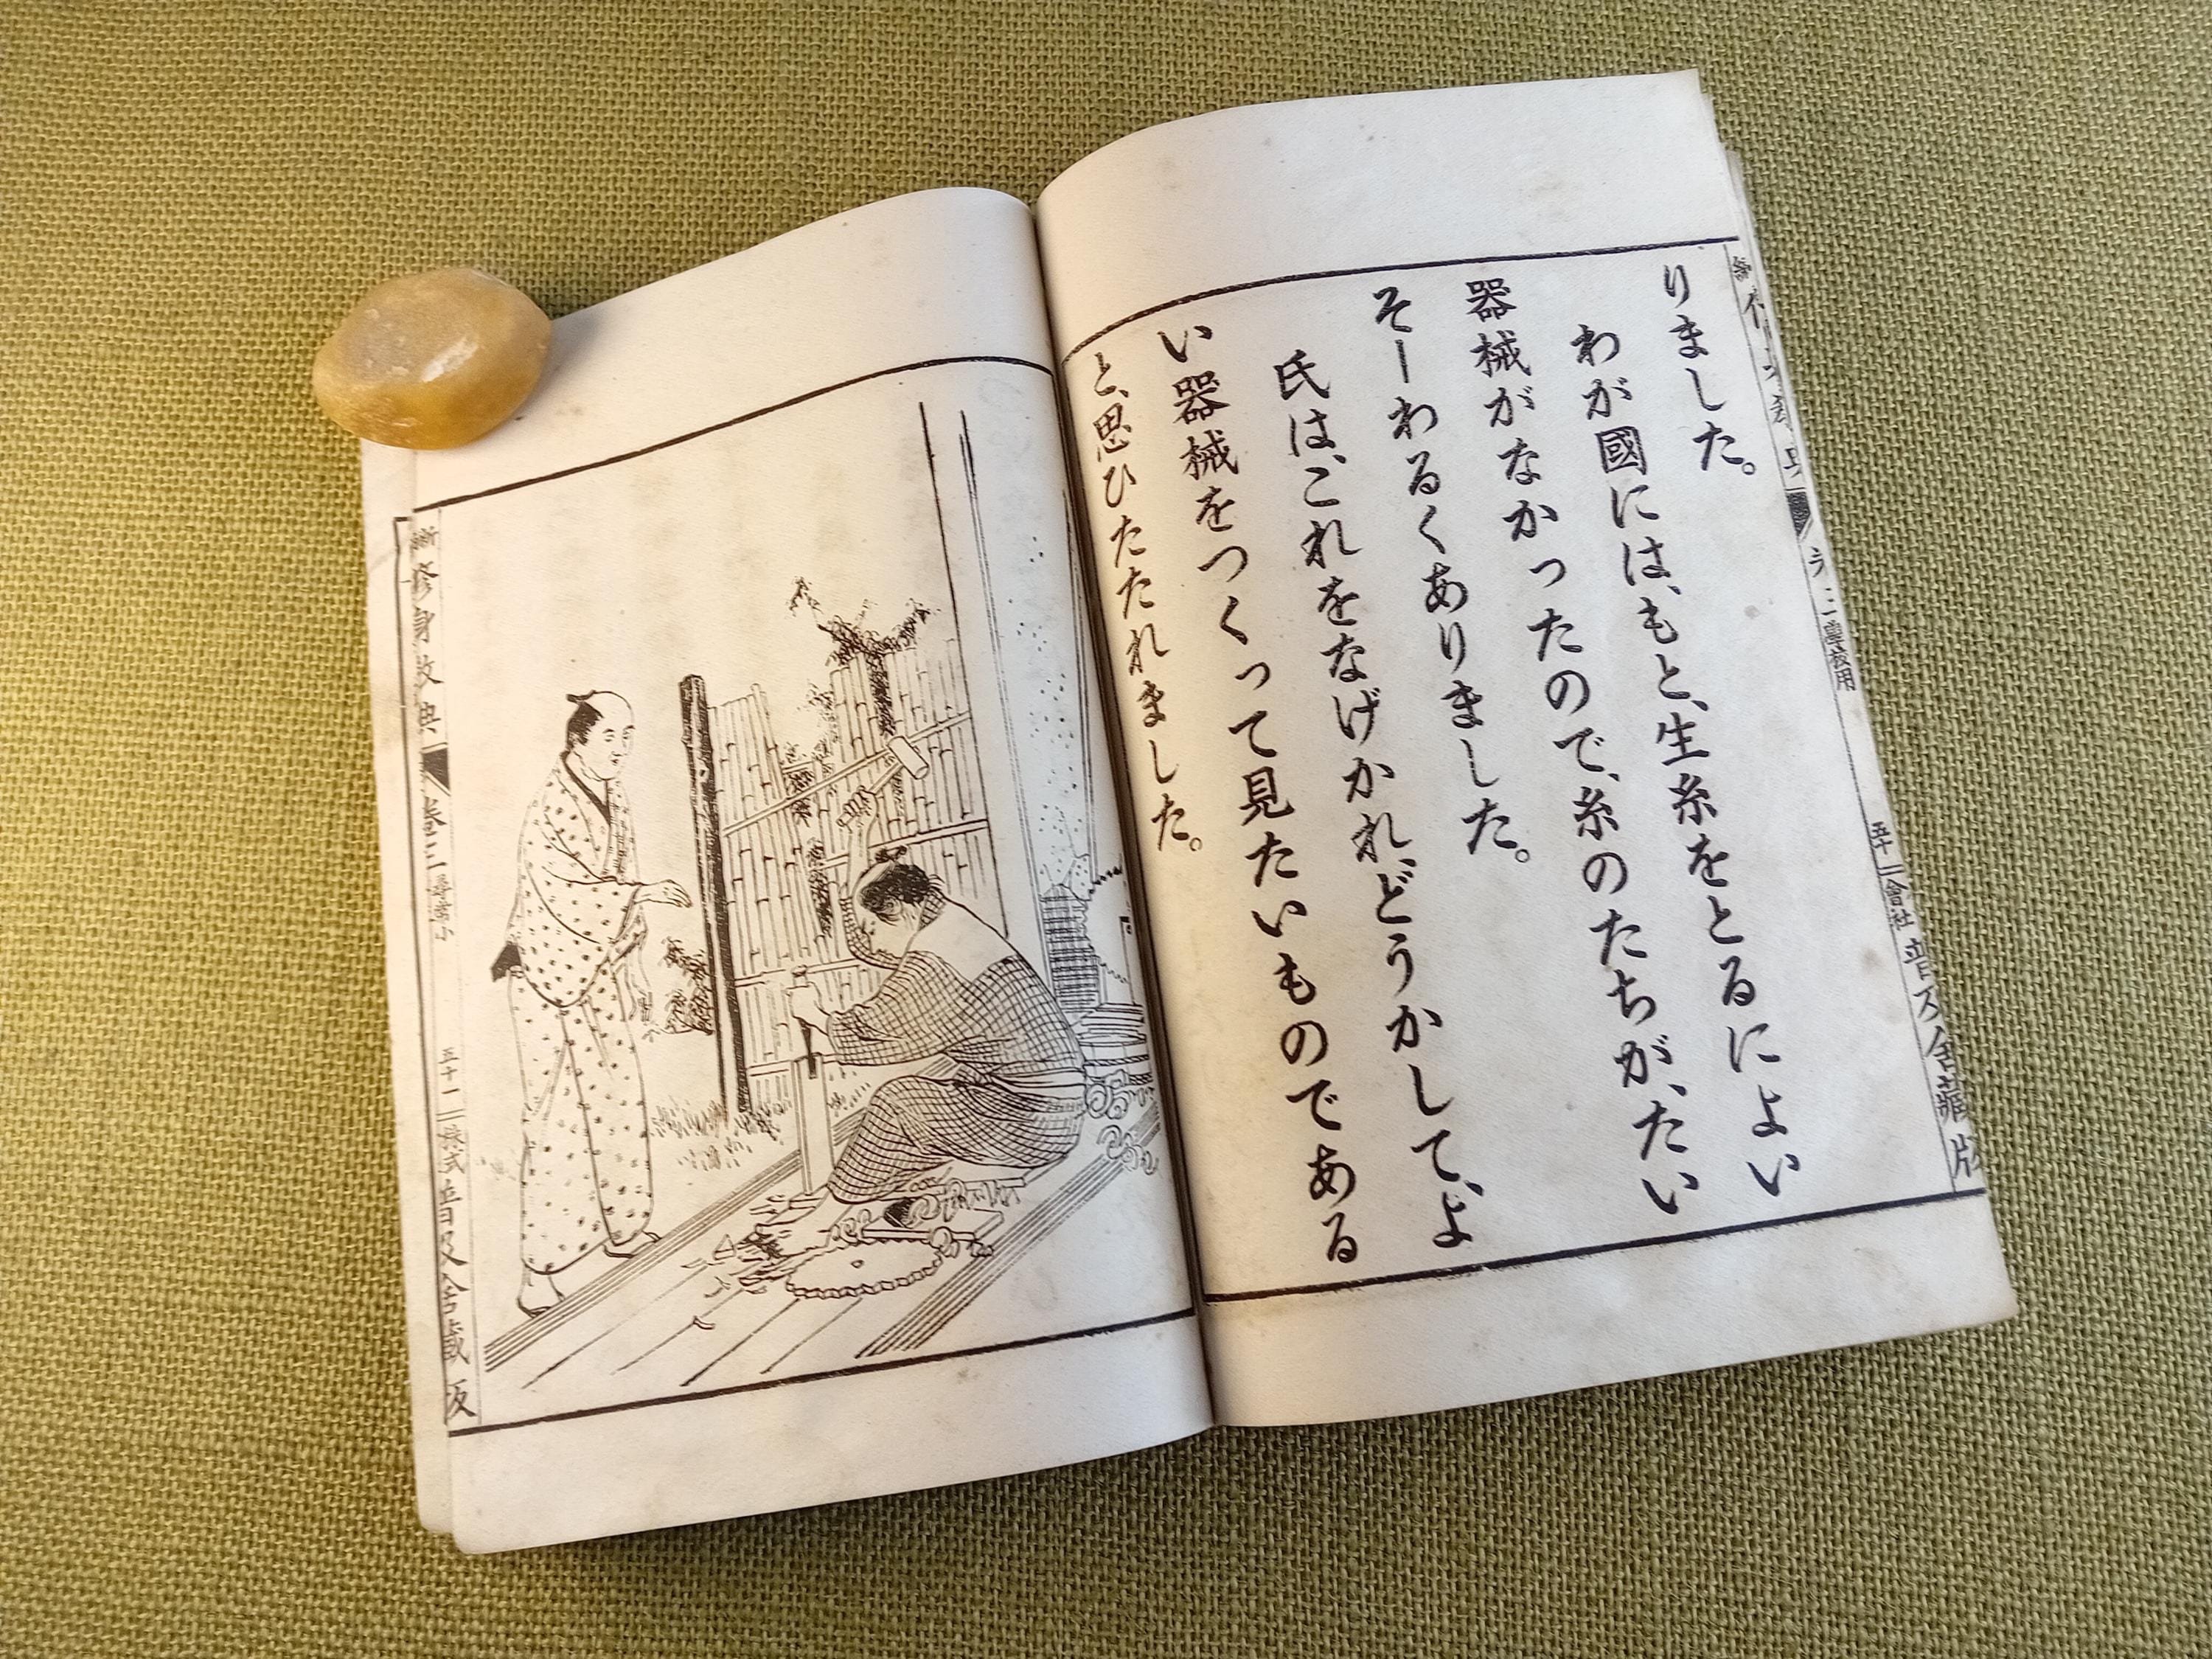 りました。
わが國には、もと、生糸をとるによい
器械がなかったので、糸のたちが、たい
そーわるくありました。
氏は、これをなげかれ、どうかして、よ
い器械をつくって見たいものである
と、思ひたたれました。
五十二 會社
學校用
修身教典 卷三 尋常小
五十一 株式 普及舍藏版